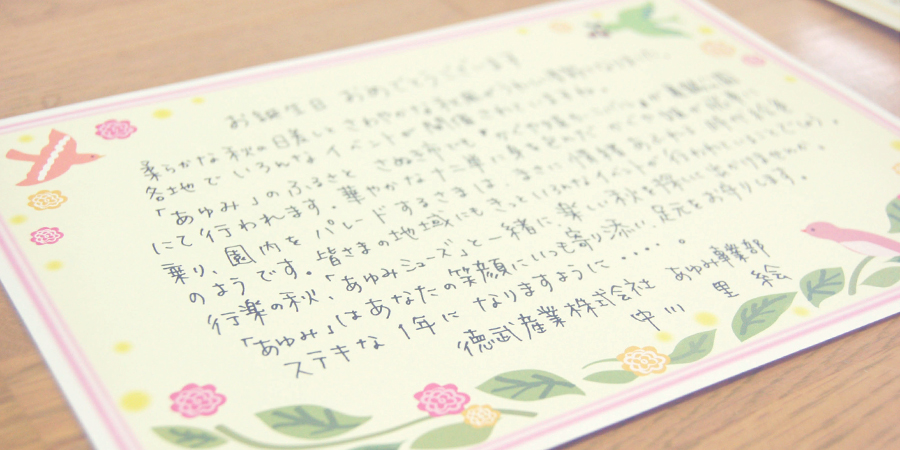 お誕生日 おめでとうございます
柔らかな秋の日差しと さわやかな秋風がうれしい季節になりました。
各地で いろんなイベントが 開催されていますね。
「あゆみ」のふるさと さぬき市でも
にて行われます。華やかな十二単に身を
乗り、園内を パレードするさまは、まさに情緒あふれる時代絵巻
のようです。皆さまの地域にも きっといろんなイベントが 行われているのでしょうね。
行楽の秋、「あゆみシューズ」と一緒に 楽しい秋を 探しに出かけませんか。
「あゆみ」は あなたの笑顔に いつも寄り添い、足元をお守りします。
ステキな 1年に なりますように ・・・・。
徳武産業株式会社 あゆみ事業部
中川 里絵